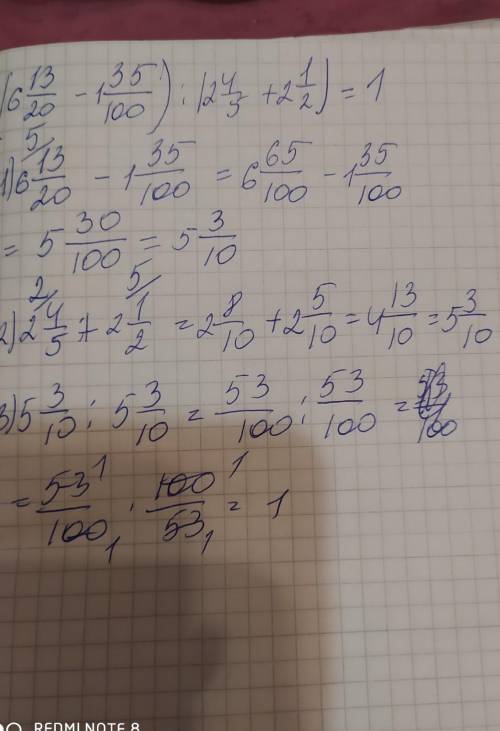 (6 13/20 - 1 35/100) : (2 4/5 + 2 1/2) = 1
1) 6 13/20 - 1 35/100 = 6 65/100 - 1 35/100
= 5 30/100 = 5 3/10
2) 2 4/5 + 2 1/2 = 2 8/10 + 2 5/10 = 4 13/10 = 5 3/10
3) 5 3/10 : 5 3/10 = 53/100 : 53/100 =
= 53/100 · 100/53 = 1
REDMI NOTE 8